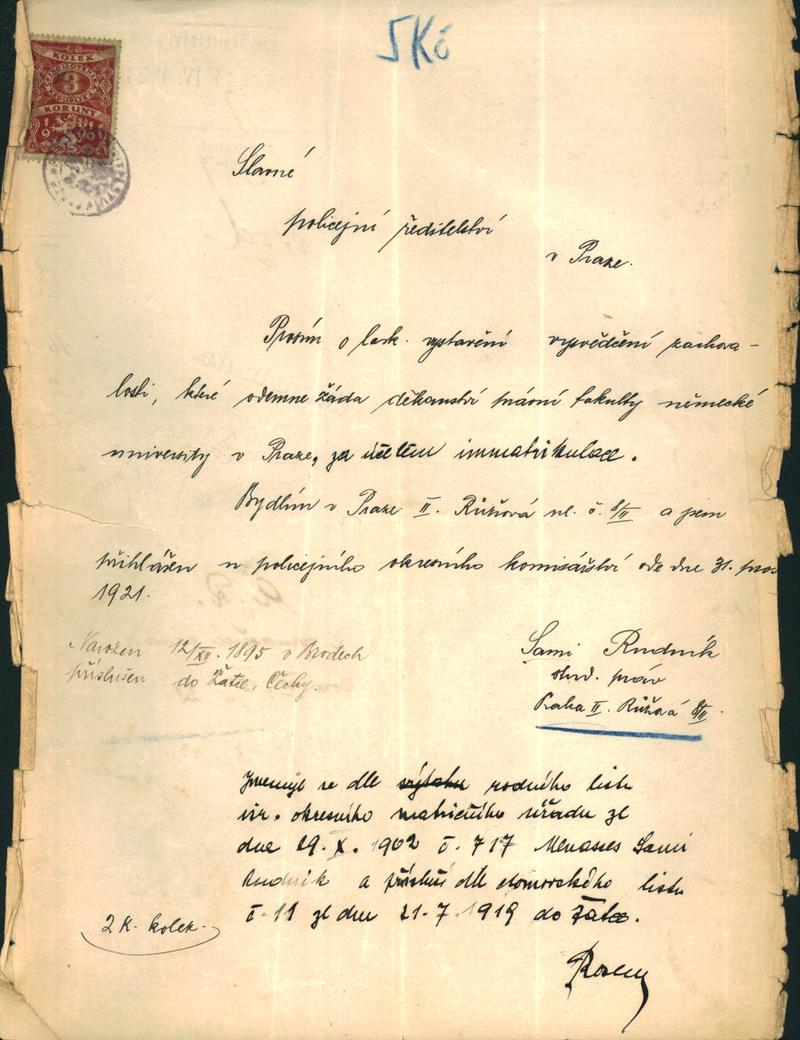 5 Kč
KOLEK
3
KORUNY
Slavné
policejní ředitelství
v Praze.
Prosím o lask. vystavení vysvědčení zachova-
losti, které odemne žáda děkanství právní fakulty německé
university v Praze, za účelem immatrikulace.
Bydlím v Praze II. Růžová ul. č. 8/II a jsem
přihlášen u policejního okresního komisařství ode dne 31. pros
1921.
Narozen 12/XII. 1895 v Brodech
příslušen do Žatce, Čechy.
Sami Rudník
stud. práv
Praha II. Růžová 8/II.
Jmenuje se dle výtahu rodného listu
isr. okresního matričního úřadu ze
dne 29. X. 1902 č. 717 Menasses Sami
Rudnik a přísluší dle domovského listu
č. 11 ze dne 21.7.1919 do Žatce.
2 K. kolek.